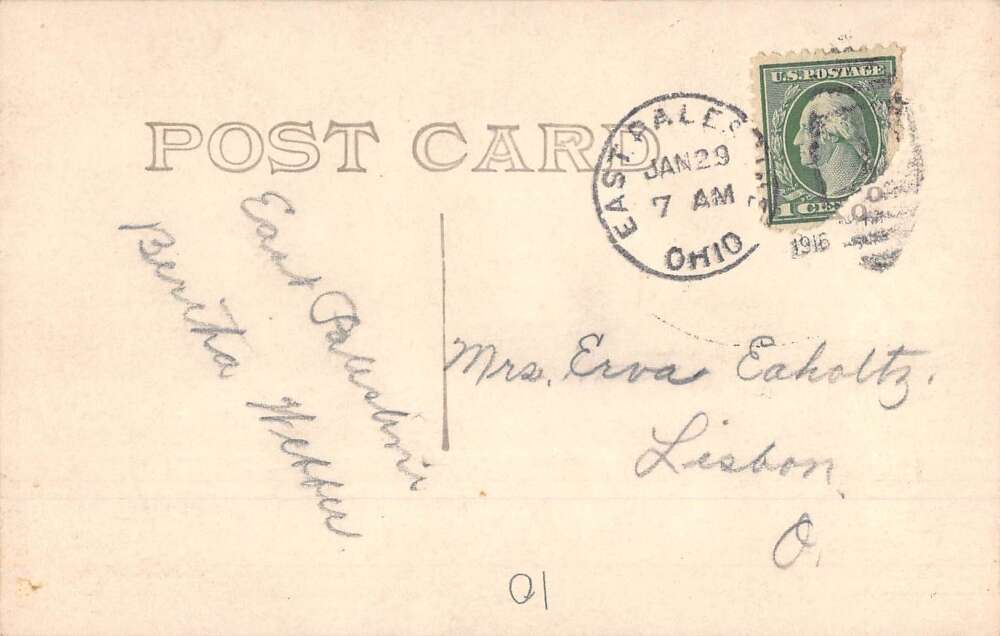 POST CARD
U.S. POSTAGE
1
EAST PALES
JAN 29
7 AM
OHIO
1916
East Palestine
Bertha Webber
Mrs. Erva Eaholtz.
Lisbon
O.
01